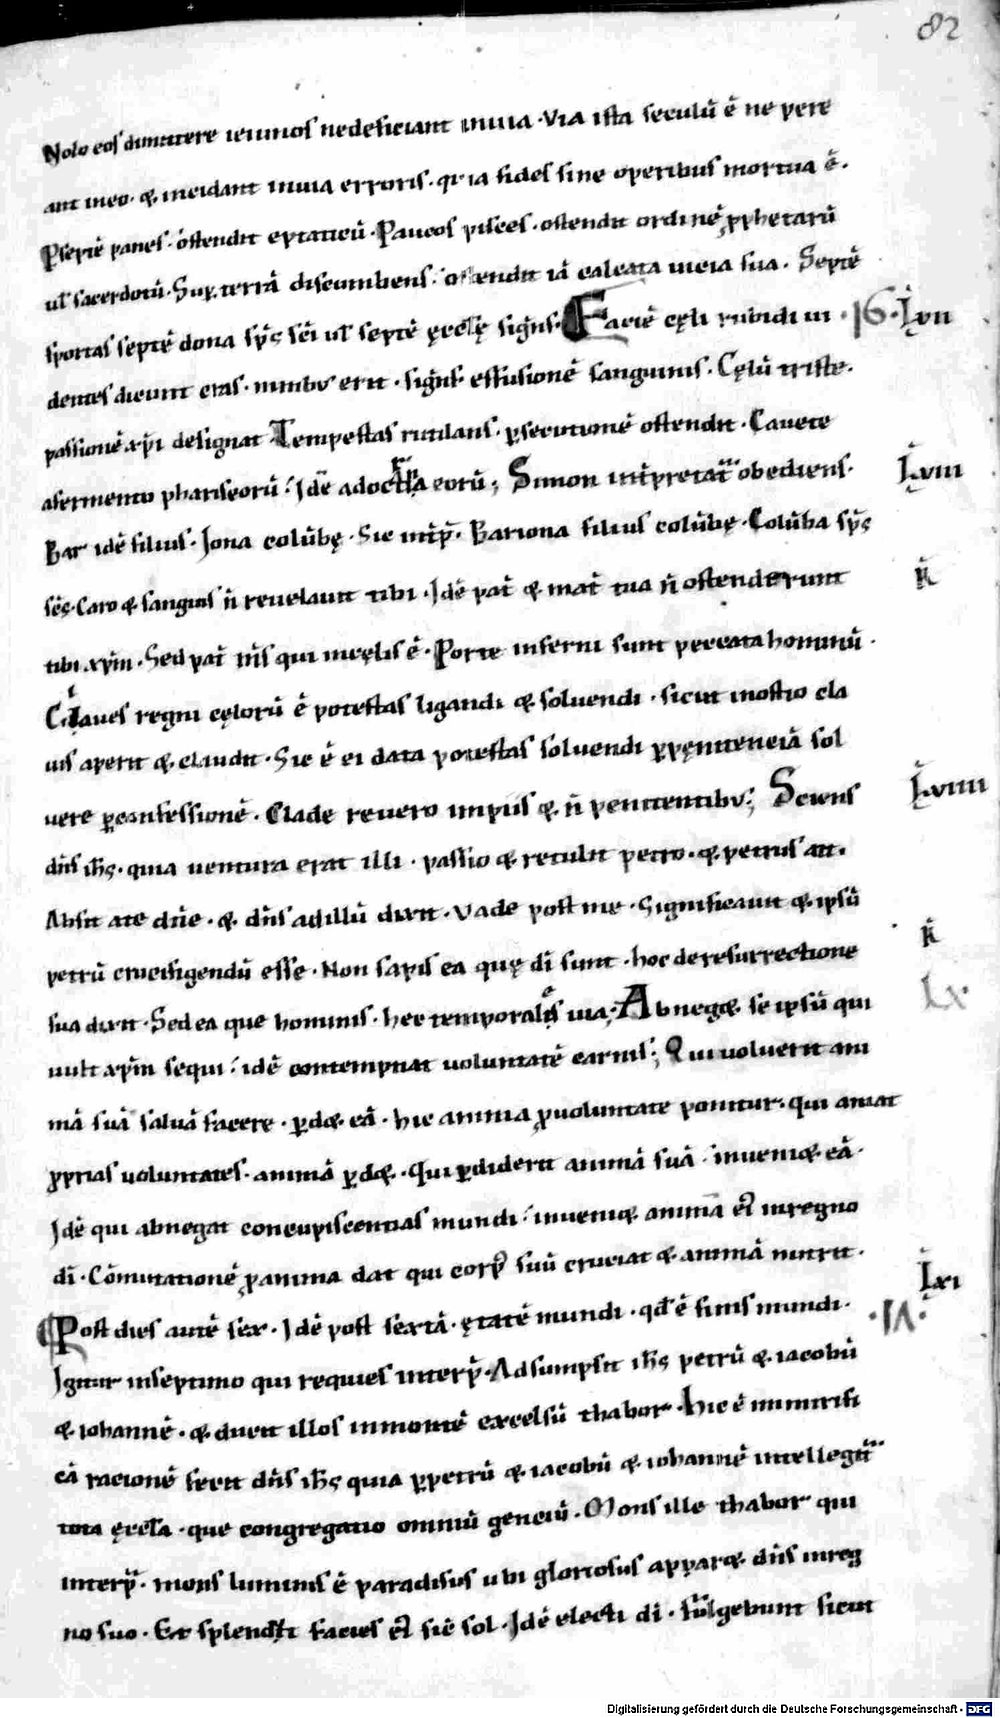 82
Nolo eos dimittere ieiunos nedeficiant inuia · Via ista seculū ē ne pere
ant ineo · & incidant inuia erroris · quia fides sine operibus mortua ē .
P septē panes · ostendit eptaticū · Paucos pisces · ostendit ordinē pphetarū
ul sacerdotū · Sup terrā discumbens : ostendit iā calcata uicia sua . Septē
sportas septē dona sp̄s sc̄i ul septē ęcclę signs · Faciē cęli rubidi in · 16 · Lvii
dentes dicunt cras · nimbus erit · signs effusionē sanguinis · Cęlū triste .
passionē xpi designat Tempestas rutilans · psecutionē ostendit · Cauete
afermento phariseorū : Idē adoctrina eorū ; Simon intpretat obediens . Lviii
Bar idē filius · Jona colūbę · Sic intp̄ · Bariona filius colūbę · Colūba sp̄s
sc̄s · Caro & sanguis n̄ reuelauit tibi · Idē pat̄ & mat̄ tua n̄ ostenderunt k̄
tibi xpm · Sed pat̄ m̄s qui incęlis ē · Porte inferni sunt peccata hominū .
Claues regni cęlorū ē potestas ligandi & soluendi · sicut inostio cla
uis aperit & claudit · Sic ē ei data potestas soluendi p pęnitenciā sol
uere p confessionē . Clade reuero impiis & n̄ penitentibus ; Sciens Lviiii
dn̄s ih̄s · quia uentura erat illi · passio & retulit petro · & petrus ait .
Absit ate dn̄e · & dn̄s adillū dixit · Vade post me · Significauit & ipsū
petrū crucifigendū esse · Non sapis ea quę di sunt · hoc deresurrectione k̄
sua dixit · Sed ea que hominis · hec temporales uia ; Abneg& se ipsū qui Lx
uult xpm sequi : idē contempnat uoluntatē carnis ; Qui uoluerit ani
mā suā saluā facere · pd& eā · hic anima p uoluntate ponitur . qui amat
pprias uoluntates · animā pd& · Qui pdiderit animā suā · inueni& eā ·
Idē qui abnegat concupiscentias mundi : inueni& animā ei inregno
di · Cōmutationē p anima dat qui corp suū cruciat & animā nutrit .
Post dies autē sex · Idē post sextā · ętatē mundi · qd ē finis mundi · Lxi · 17 ·
Igitur inseptimo qui requies interp̄ · Adsumpsit ih̄s petrū & iacobū
& iohannē · & duxit illos inmontē excelsū thabor · hic ē inmirifi
cā racionē fecit dn̄s ih̄s quia p petrū & iacobū & iohannē intellegit
tota ęccla · que congregatio omniū genciū · Mons ille thabor qui
interp̄ · mons luminis ē paradisus ubi gloriosus appar& dn̄s inreg
no suo · Et splendit facies ei sic sol · Idē electi di · fulgebunt sicut
Digitalisierung gefördert durch die Deutsche Forschungsgemeinschaft - DFG